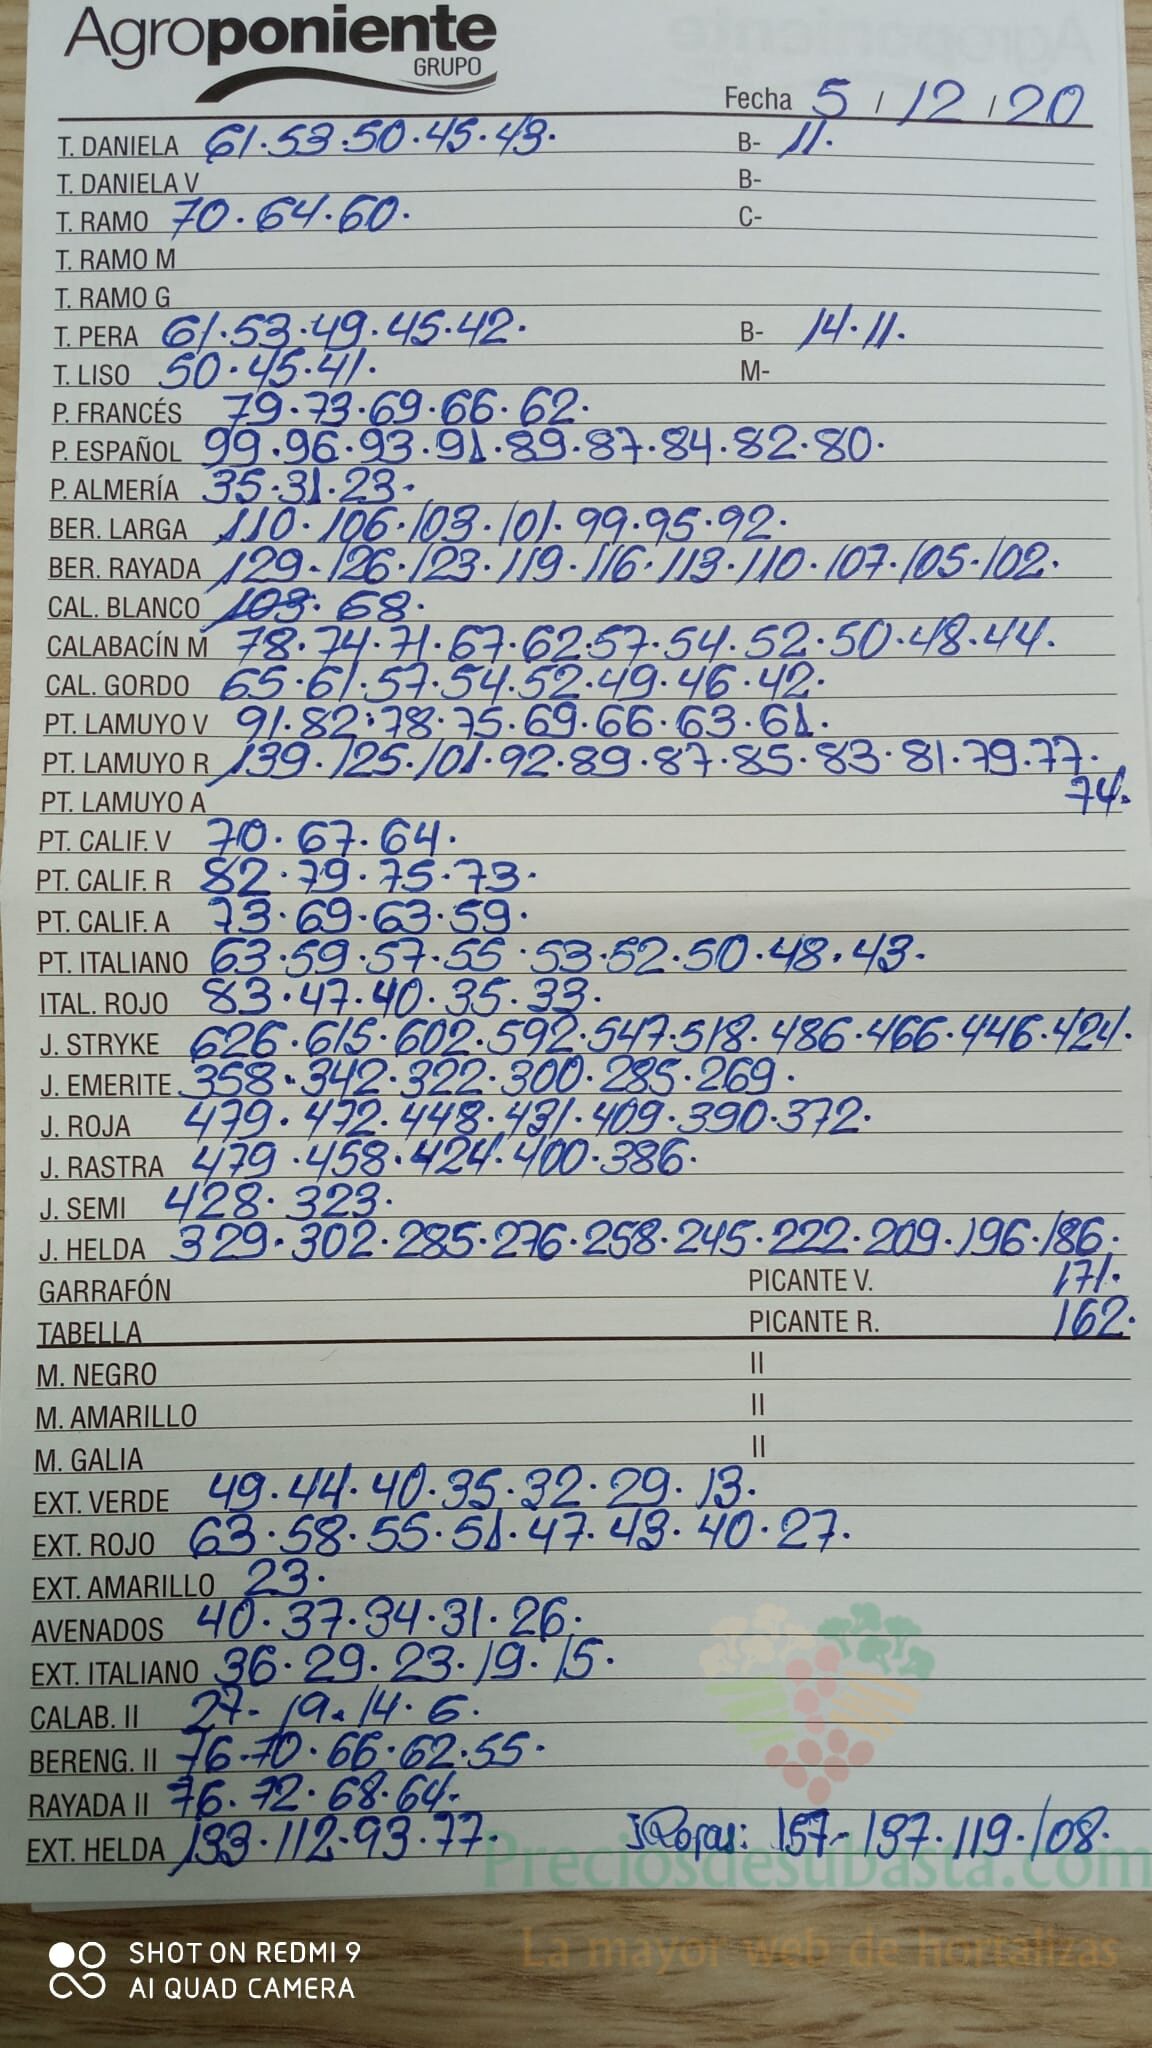 Agroponiente
GRUPO
Fecha 5 / 12 / 20
T. DANIELA 61.53.50.45.43. B- 11.
T. DANIELA V B-
T. RAMO 70.64.60. C-
T. RAMO M
T. RAMO G
T. PERA 61.53.49.45.42. B- 14.11.
T. LISO 50.45.41. M-
P. FRANCÉS 79.73.69.66.62.
P. ESPAÑOL 99.96.93.91.89.87.84.82.80.
P. ALMERÍA 35.31.23.
BER. LARGA 110.106.103.101.99.95.92.
BER. RAYADA 129.126.123.119.116.113.110.107.105.102.
CAL. BLANCO 103.68.
CALABACÍN M 78.74.71.67.62.57.54.52.50.48.44.
CAL. GORDO 65.61.57.54.52.49.46.42.
PT. LAMUYO V 91.82.78.75.69.66.63.61.
PT. LAMUYO R 139.125.101.92.89.87.85.83.81.79.77.
74.
PT. LAMUYO A
PT. CALIF. V 70.67.64.
PT. CALIF. R 82.79.75.73.
PT. CALIF. A 73.69.63.59.
PT. ITALIANO 63.59.57.55.53.52.50.48.43.
ITAL. ROJO 83.47.40.35.33.
J. STRYKE 626.615.602.592.547.518.486.466.446.424.
J. EMERITE 358.342.322.300.285.269.
J. ROJA 479.472.448.431.409.390.372.
J. RASTRA 479.458.424.400.386.
J. SEMI 428.323.
J. HELDA 329.302.285.276.258.245.222.209.196.186.
GARRAFÓN PICANTE V. 171.
TABELLA PICANTE R. 162.
M. NEGRO II
M. AMARILLO II
M. GALIA II
EXT. VERDE 49.44.40.35.32.29.13.
EXT. ROJO 63.58.55.51.47.43.40.27.
EXT. AMARILLO 23.
AVENADOS 40.37.34.31.26.
EXT. ITALIANO 36.29.23.19.15.
CALAB. II 27-19.14.6.
BERENG. II 76.70.66.62.55.
RAYADA II 76.72.68.64.
EXT. HELDA 133.112.93.77. 157-137.119.108.
Preciosdesubasta.com
La mayor web de hortalizas
SHOT ON REDMI 9
AI QUAD CAMERA